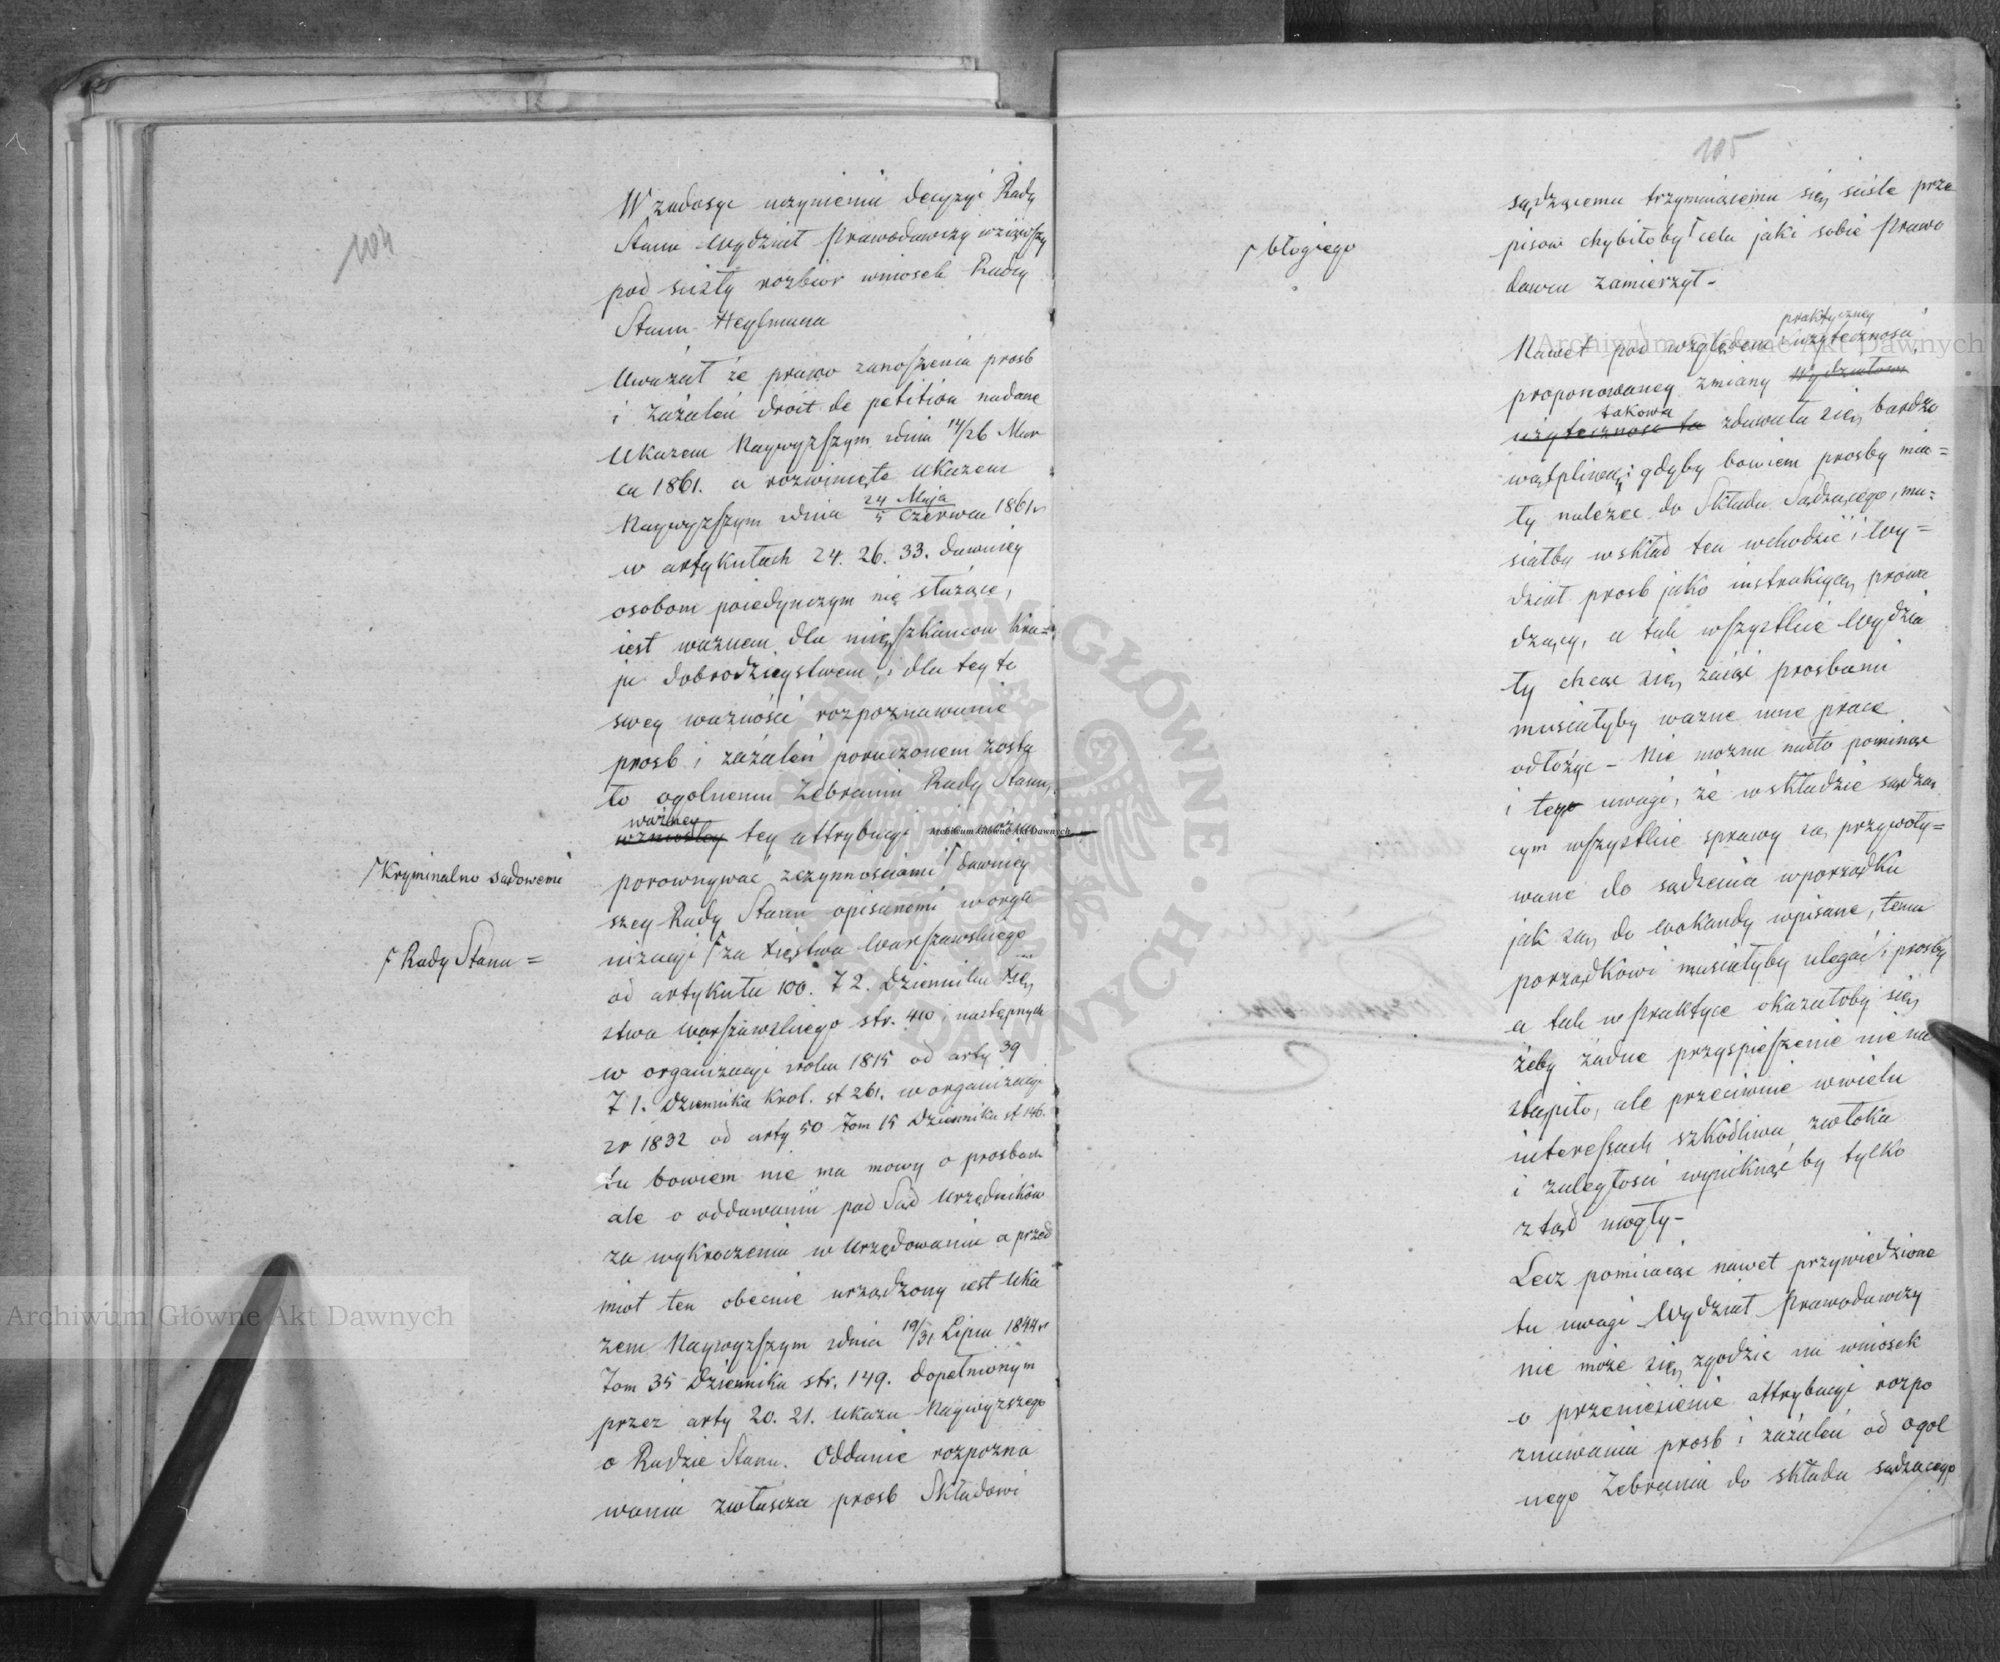 104
W zadosyć uczynieniu decyzyi Rady
Stanu Wydział Prawodawczy wziąwszy
pod ścisły rozbiór wniosek Radcy
Stanu Heylmana
Uważał że prawo zanoszenia prosb
i zażaleń droit de petition nadane
Ukazem Naywyższym zdnia 14/26 Mar
ca 1861. a rozwinięte Ukazem
Naywyższym zdnia 24 Maja / 5 Czerwca 1861 r
w artykułach 24. 26. 33. dawniey
osobom poiedynczym nie służące,
iest ważnem dla mięszkancow Kra=
ju dobrodzieystwem, i dla tey to
swey ważności rozpoznawanie
prosb i zażaleń poruczonem zosta
ło ogolnemu Zebraniu Rady Stanu,
ważney
wzniosłey tey attrybucyi nie można
porownywać zczynnościami ⌈ dawniey
⌈ Kryminalno sądowemi
szey Rady Stanu opisanemi worga
nizacyi ⌈ za Xięstwa Warszawskiego
⌈ Rady Stanu =
od artykułu 100. T 2. Dziennika Xię
stwa Warszawskiego str. 410 i następnych
w organizacyi zroku 1815 od arty 39
T 1. Dziennika Krol. st 261. w organizacyi
zr 1832 od arty 50 Tom 15 Dziennika st 146.
tu bowiem nie ma mowy o prosbach
ale o oddawaniu pod Sąd Urzędników
za wykroczenia w Urzędowaniu a przed
miot ten obecnie urządzony iest Uka
zem Naywyższym zdnia 19/31 Lipca 1844 r
Tom 35 Dziennika str. 149. dopełnionym
przez arty 20. 21. Ukazu Naywyższego
o Radzie Stanu. Oddanie rozpozna
wania zwłaszcza prosb Składowi
105
sądzącemu trzymaiącemu się ściśle prze
pisow chybiłoby ⌈ celu jaki sobie Prawo
⌈ błogiego
dawca zamierzył -
praktyczney
Nawet pod względem użyteczności,
proponowaney zmiany Wydziałowi
takowa
użyteczność ta zdawała się bardzo
wątpliwą; gdyby bowiem prosby mia=
ły należec do Składu Sądzącego, mu=
siałby wskład ten wchodzić i Wy=
dział prosb jako instrukcyę prowa
dzący, a tak wszystkie Wydzia
ły chcąc się zaiąć prosbami
musiałyby ważne inne prace
odłożyc - Nie można nadto pominąć
i tey uwagi, że wskładzie sądzą
cym wszystkie sprawy są przywoły=
wane do sądzenia wporządku
jak są do wokandy wpisane, temu
porządkowi musiałyby ulegać i prosby
a tak w praktyce okazałoby się
żeby żadne przyspieszenie nie na
stąpiło, ale przeciwnie wwielu
interessach szkodliwa zwłoka
i zaległosci wyniknąć by tylko
ztąd mogły -
Lecz pomiiaiąc nawet przywiedzione
tu uwagi Wydział Prawodawczy
nie może się zgodzic na wniosek
o przeniesienie attrybucyi rozpo
znawania prosb i zażaleń od ogol
nego Zebrania do składu sądzącego
Archiwum Główne Akt Dawnych
Archiwum Główne Akt Dawnych
Archiwum Główne Akt Dawnych
ARCHIWUM GŁÓWNE AKT DAWNYCH